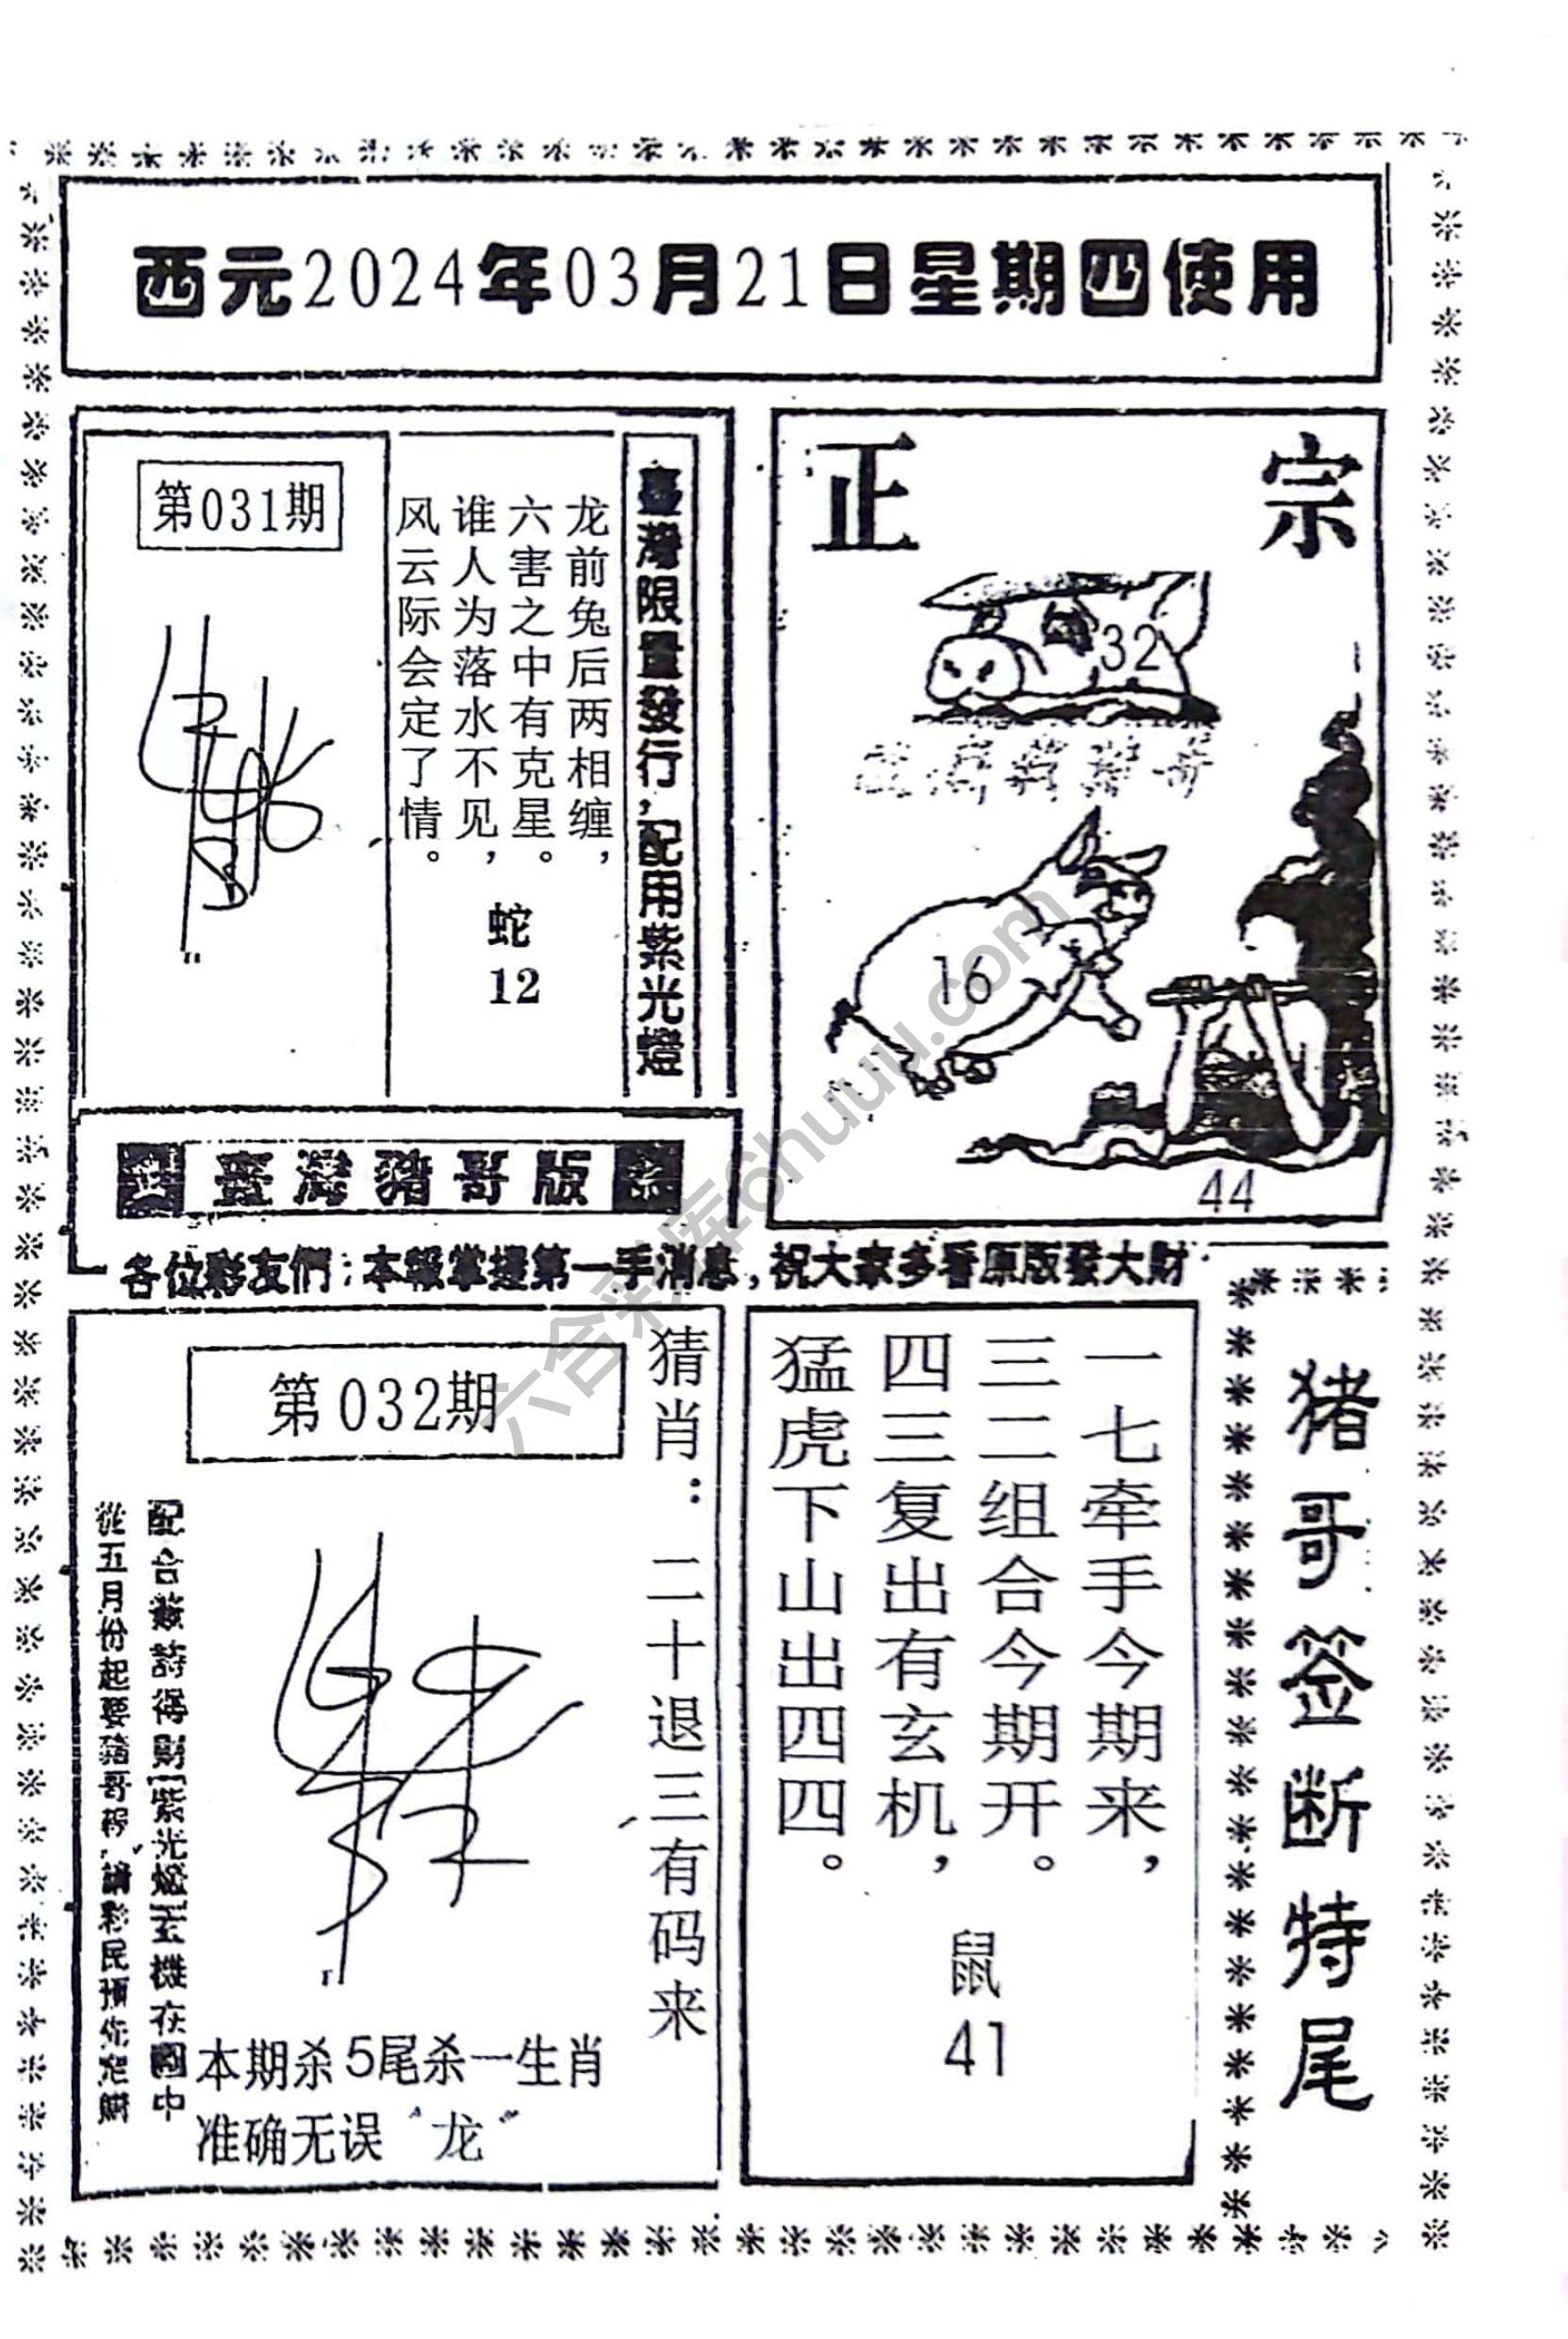 西元2024年03月21日星期四使用
第031期
臺灣限量發行,配用紫光燈
龙前兔后两相缠，
六害之中有克星。
谁人为落水不见，
风云际会定了情。
蛇
12
正宗
32
16
44
臺灣豬哥版
各位彩友們:本報掌握第一手消息,祝大家多看原版發大財
第032期
猜肖：二十退三有码来
配合
從五月份起要豬哥
本期杀5尾杀一生肖
准确无误“龙”
一七牵手今期来，
三二组合今期开。
四三复出有玄机，
猛虎下山出四四。
鼠
41
猪哥签断特尾
六合彩库6huuu.com